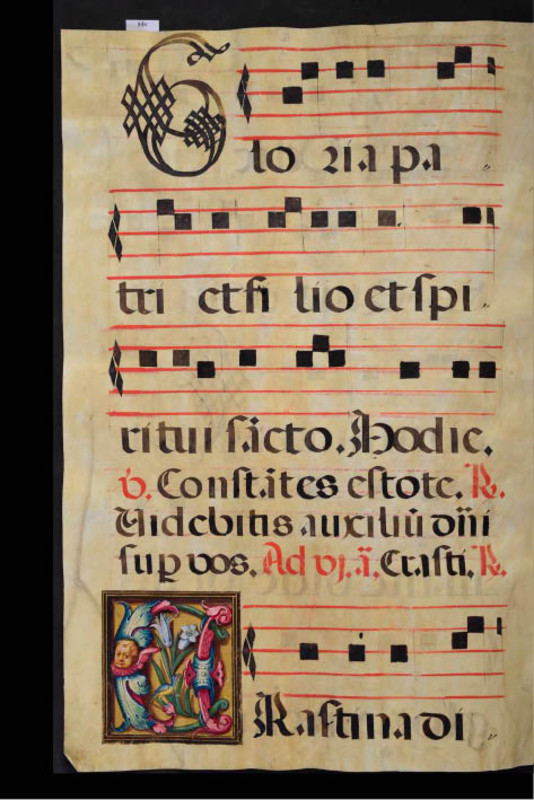 Glo ria pa
tri et fi lio et spi
ritui sācto. Hodie.
v. Constātes estote. R.
Videbitis auxiliū dn̄i
sup vos. Ad vj. ā. Crasti. R.
Crastina di